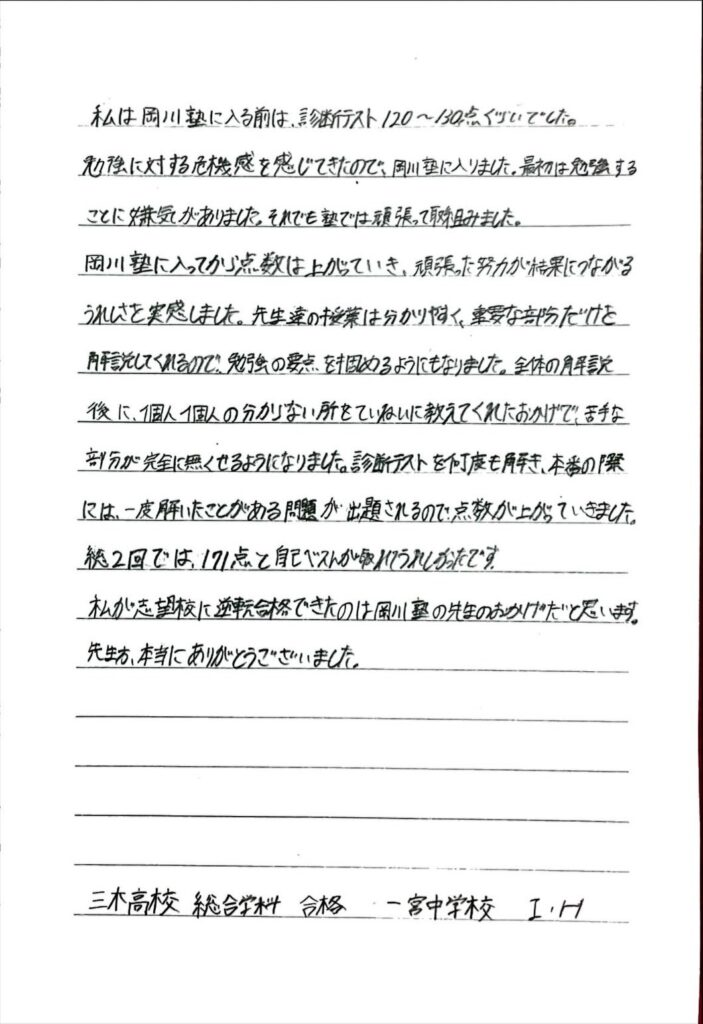 私は岡川塾に入る前は、診断テスト120〜130点ぐらいでした。
勉強に対する危機感を感じてきたので、岡川塾に入りました。最初は勉強する
ことに嫌気がありました。それでも塾では頑張って取り組みました。
岡川塾に入ってから点数は上がっていき、頑張った努力が結果につながる
うれしさを実感しました。先生達の授業は分かりやすく、重要な部分だけを
解説してくれるので、勉強の要点を固めるようにもなりました。全体の解説
後に、1個人1個人の分からない所をていねいに教えてくれたおかげで、苦手な
部分が完全に無くせるようになりました。診断テストを何度も解き、本番の際
には、一度解いたことがある問題が出題されるので点数が上がっていきました。
第2回では、171点と自己ベストが取れてうれしかったです。
私が志望校に逆転合格できたのは岡川塾の先生のおかげだと思います。
先生方、本当にありがとうございました。
三木高校 総合学科 合格 一宮中学校 I・H